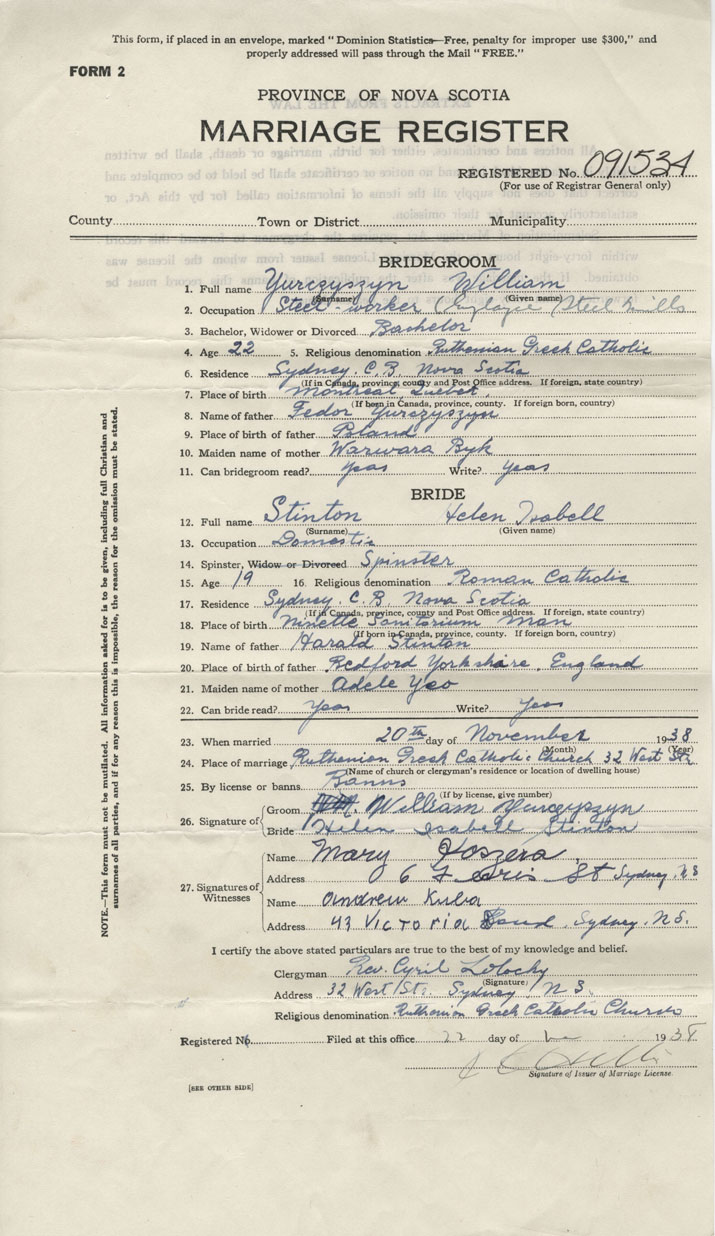 This form, if placed in an envelope, marked "Dominion Statistics—Free, penalty for improper use $300," and
properly addressed will pass through the Mail "FREE."
FORM 2
PROVINCE OF NOVA SCOTIA
MARRIAGE REGISTER
REGISTERED No. 091534
(For use of Registrar General only)
County Town or District Municipality
BRIDEGROOM
1. Full name Yurczyszyn William
(Surname) (Given name)
2. Occupation Steel-worker Steel Mills
3. Bachelor, Widower or Divorced Bachelor
4. Age 22 5. Religious denomination Ruthenian Greek Catholic
6. Residence Sydney. C.B. Nova Scotia
(If in Canada, province, county and Post Office address. If foreign, state country)
7. Place of birth Montreal Quebec
(If born in Canada, province, county. If foreign born, country)
8. Name of father Fedor Yurczyszyn
9. Place of birth of father Poland
10. Maiden name of mother Warwara Byk
11. Can bridegroom read? yeas Write? yeas
BRIDE
12. Full name Stinton Helen Isabell
(Surname) (Given name)
13. Occupation Domestic
14. Spinster, Widow or Divorced Spinster
15. Age 19 16. Religious denomination Roman Catholic
17. Residence Sydney. C.B. Nova Scotia
(If in Canada, province, county and Post Office address. If foreign, state country)
18. Place of birth Ninette Sanitorium Man
(If born in Canada, province, county. If foreign born, country)
19. Name of father Harald Stinton
20. Place of birth of father Redford Yorkshire, England
21. Maiden name of mother Adele Yeo
22. Can bride read? Yeas Write? Yeas
23. When married 20th day of November 1938
(Month) (Year)
24. Place of marriage Ruthenian Greek Catholic Church 32 West Str
(Name of church or clergyman's residence or location of dwelling house)
25. By license or banns Banns
(If by license, give number)
26. Signature of Groom William Yurczyszyn
Bride Helen Isabell Stinton
27. Signatures of Witnesses
Name Mary Koszera
Address 6 St Sydney. N S
Name Andrew Kuba
Address 43 Victoria Road, Sydney. N.S.
I certify the above stated particulars are true to the best of my knowledge and belief.
Clergyman Rev. Cyril Lotocky
(Signature)
Address 32 West St. Sydney, N S.
Religious denomination Ruthenian Greek Catholic Church
Registered No. Filed at this office 22 day of 1938
Signature of Issuer of Marriage License
[SEE OTHER SIDE]
NOTE.—This form must not be mutilated. All information asked for is to be given, including full Christian and
surnames of all parties, and if for any reason this is impossible, the reason for the omission must be stated.